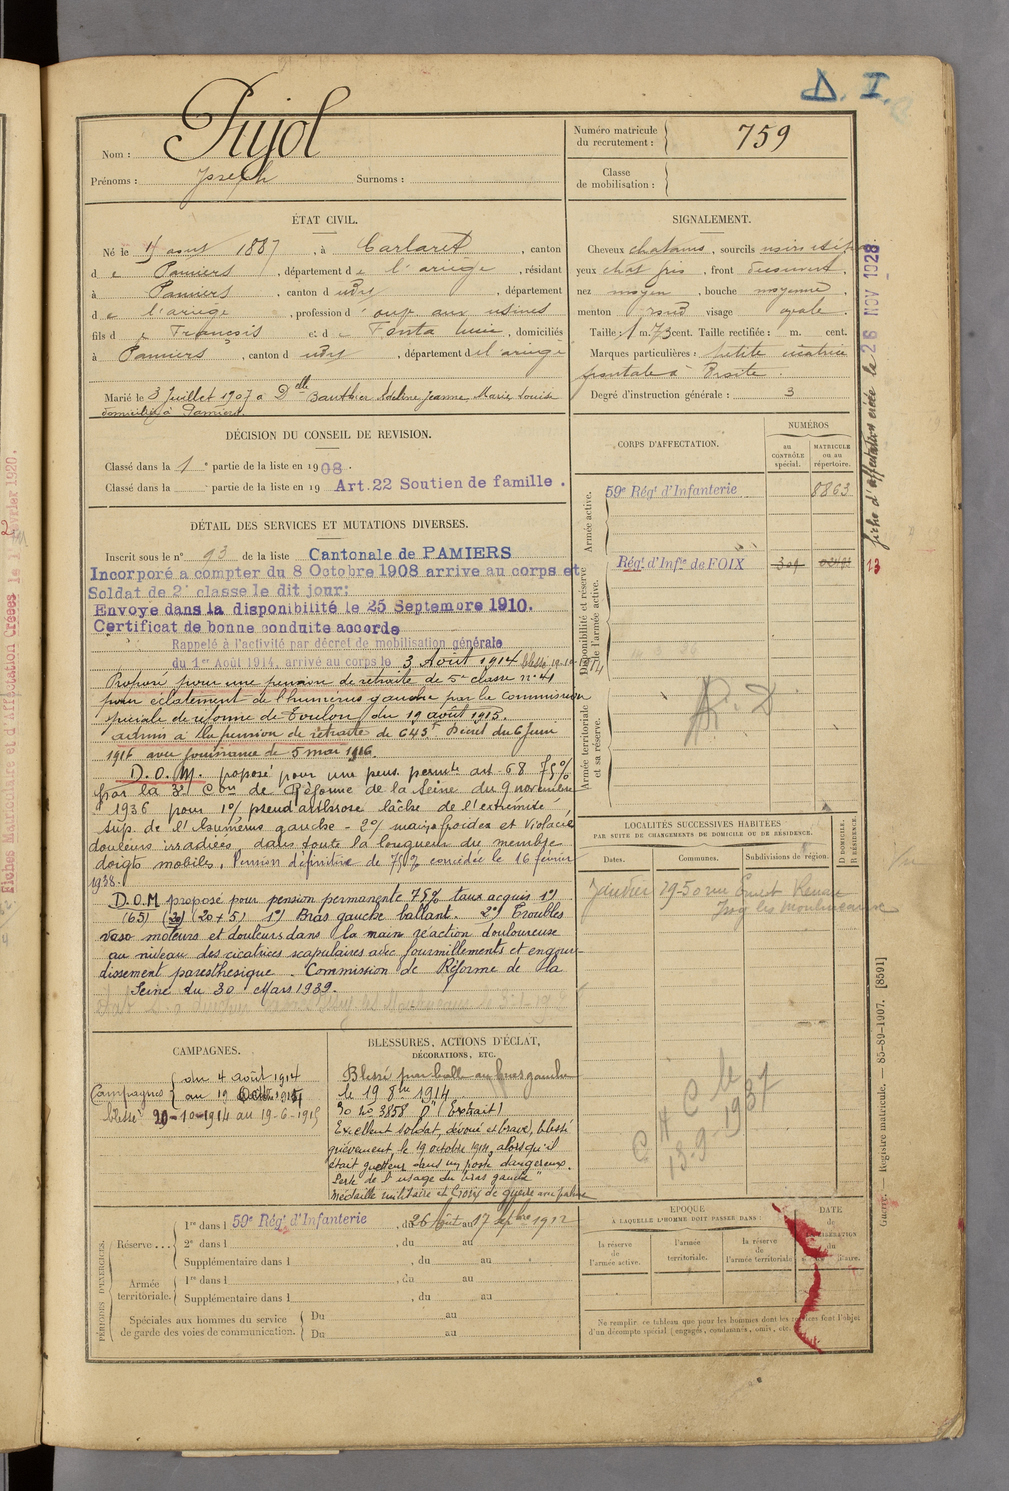 D. I.
Nom : Pujol
Prénoms : Joseph Surnoms :
Numéro matricule du recrutement : 759
Classe de mobilisation :
ÉTAT CIVIL.
Né le août 1887, à Carlaret, canton
d e Pamiers, département d e l'ariège, résidant
à Pamiers, canton d udy, département
d e l'ariège, profession d' oup aux usines
fils d e François et d e Fonta, domiciliés
à Pamiers, canton d udy, département d el'ariège
Marié le 3 Juillet 1907 à Dlle Bauthier Adeline Jeanne Marie Louise
domiciliée à Pamiers
SIGNALEMENT.
Cheveux chatains, sourcils noirs
yeux chat gris, front découvert,
nez moyen, bouche moyenne,
menton rond visage ovale.
Taille : 1 m. 73 cent. Taille rectifiée : m. cent.
Marques particulières : petite cicatrice
frontale à Droite.
Degré d'instruction générale : 3
fiche d'affectation créée le 26 NOV 1928
DÉCISION DU CONSEIL DE REVISION.
Classé dans la 1e partie de la liste en 1908.
Classé dans la partie de la liste en 19 Art. 22 Soutien de famille.
DÉTAIL DES SERVICES ET MUTATIONS DIVERSES.
Inscrit sous le n° 93 de la liste Cantonale de PAMIERS
Incorporé a compter du 8 Octobre 1908 arrive au corps et
Soldat de 2e classe le dit jour;
Envoye dans la disponibilité le 25 Septemore 1910.
Certificat de bonne conduite accorde
Rappelé à l'activité par décret de mobilisation générale
du 1er Août 1914, arrivé au corps le 3 Août 1914 blessé 19-10-1914
Proposé pour une pension de retraite de 5e classe n° 41
pour éclatement de l'humérus gauche par la commission
spéciale de réforme de Toulon du 19 août 1915.
admis à la pension de retraite de 645f Décret du 6 Juin
1916 avec jouissance du 5 mai 1916.
D.O.M. proposé pour une pens. permte art. 68 75%
par la 3e Con de Réforme de la Seine du 9 novembre
1936 pour 1°) pseudarthrose lâche de l'extremité
sup. de l'humérus gauche - 2°) mains froides et violacées
douleurs irradiées dans toute la longueur du membre
doigts mobiles. Pension définitive de 75% concédée le 16 février
1938.
D.O.M proposé pour pension permanente 75% taux acquis 1°)
(65) (30) (20+5) 1°) Bras gauche ballant. 2°) Troubles
vaso moteurs et douleurs dans la main réaction douloureuse
au niveau des cicatrices scapulaires avec fourmillements et engour-
dissement paresthesique. Commission de Réforme de la
Seine du 30 Mars 1939.
CORPS D'AFFECTATION.
NUMÉROS
au CONTRÔLE spécial.
MATRICULE ou au répertoire.
Armée active.
59e Régt d'Infanterie 8863
Disponibilité et réserve de l'armée active.
Régt d'Infie de FOIX 309
13
Armée territoriale et sa réserve.
LOCALITÉS SUCCESSIVES HABITÉES
PAR SUITE DE CHANGEMENTS DE DOMICILE OU DE RÉSIDENCE.
Dates. Communes. Subdivisions de région.
D. DOMICILE. R. RÉSIDENCE.
Janvier 19-50 rue Ernest Renan
Issy les Moulineaux
13-9-1937
CAMPAGNES.
Campagnes du 4 août 1914
au 19
blessé 20-10-1914 au 19-6-1915
BLESSURES, ACTIONS D'ÉCLAT,
DÉCORATIONS, ETC.
Blessé par balle au bras gauche
le 19 8bre 1914
JO no 3858 D" (Extrait)
Excellent soldat, dévoué et brave, blessé
grièvement le 19 octobre 1914, alors qu'il
était guetteur dans un poste dangereux.
Perte de l'usage du bras gauche"
Médaille militaire et Croix de guerre avec palme
PÉRIODES D'EXERCICES.
Réserve ... 1re dans l 59e Régt d'Infanterie, du 26 Août au 17 septbre 1912
2e dans l , du au
Supplémentaire dans l , du au
Armée territoriale. 1re dans l , du au
Supplémentaire dans l , du au
Spéciales aux hommes du service de garde des voies de communication. Du au
Du au
ÉPOQUE
À LAQUELLE L'HOMME DOIT PASSER DANS :
la réserve de l'armée active.
l'armée territoriale.
la réserve de l'armée territoriale
DATE
Ne remplir ce tableau que pour les hommes dont les services font l'objet
d'un décompte spécial (engagés, condamnés, omis, etc.
Guerre. — Registre matricule. — 85-89-1907. [8591]